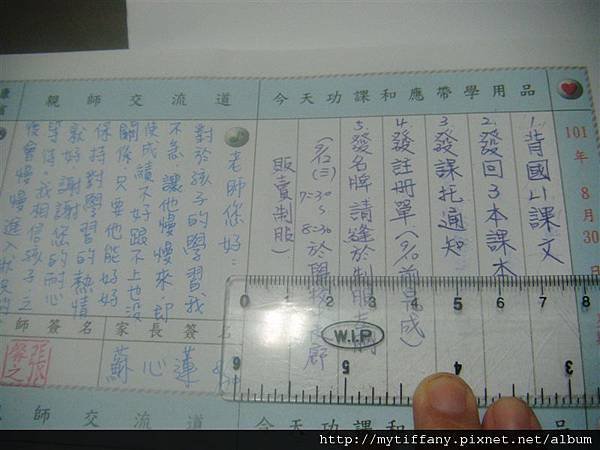 親師交流道
今天功課和應帶學用品
101年8月30日
1.背國L1課文
2.發回3本課本
3.發課托通知
4.發註冊單(9/10前完成)
5.發名牌請縫於制服
(9/12(三)7:30~8:30於開
販賣制服)
老師您好:
對於孩子的學習我
不急,讓他慢慢來,即
使成績不好跟不上也沒
關係,只要他能好好
保持對學習的熱情
就好,謝謝您的耐心
等待,我相信孩子之
後會慢慢進入狀況的
師簽名
家長簽名
蘇心蓮
0 1 2 3 4 5 6 7 8
W.I.P.
6 5 4 3
師交流道
今天功課和
用品
http://mytiffany.pixnet.net/album